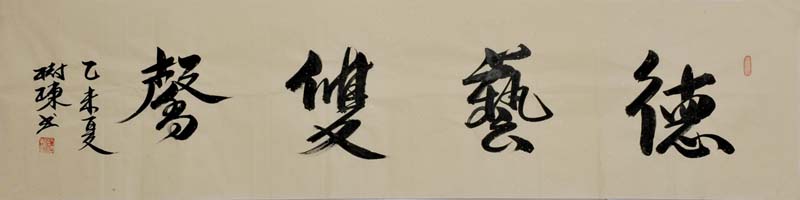 德藝雙馨
乙未夏
樹陳书